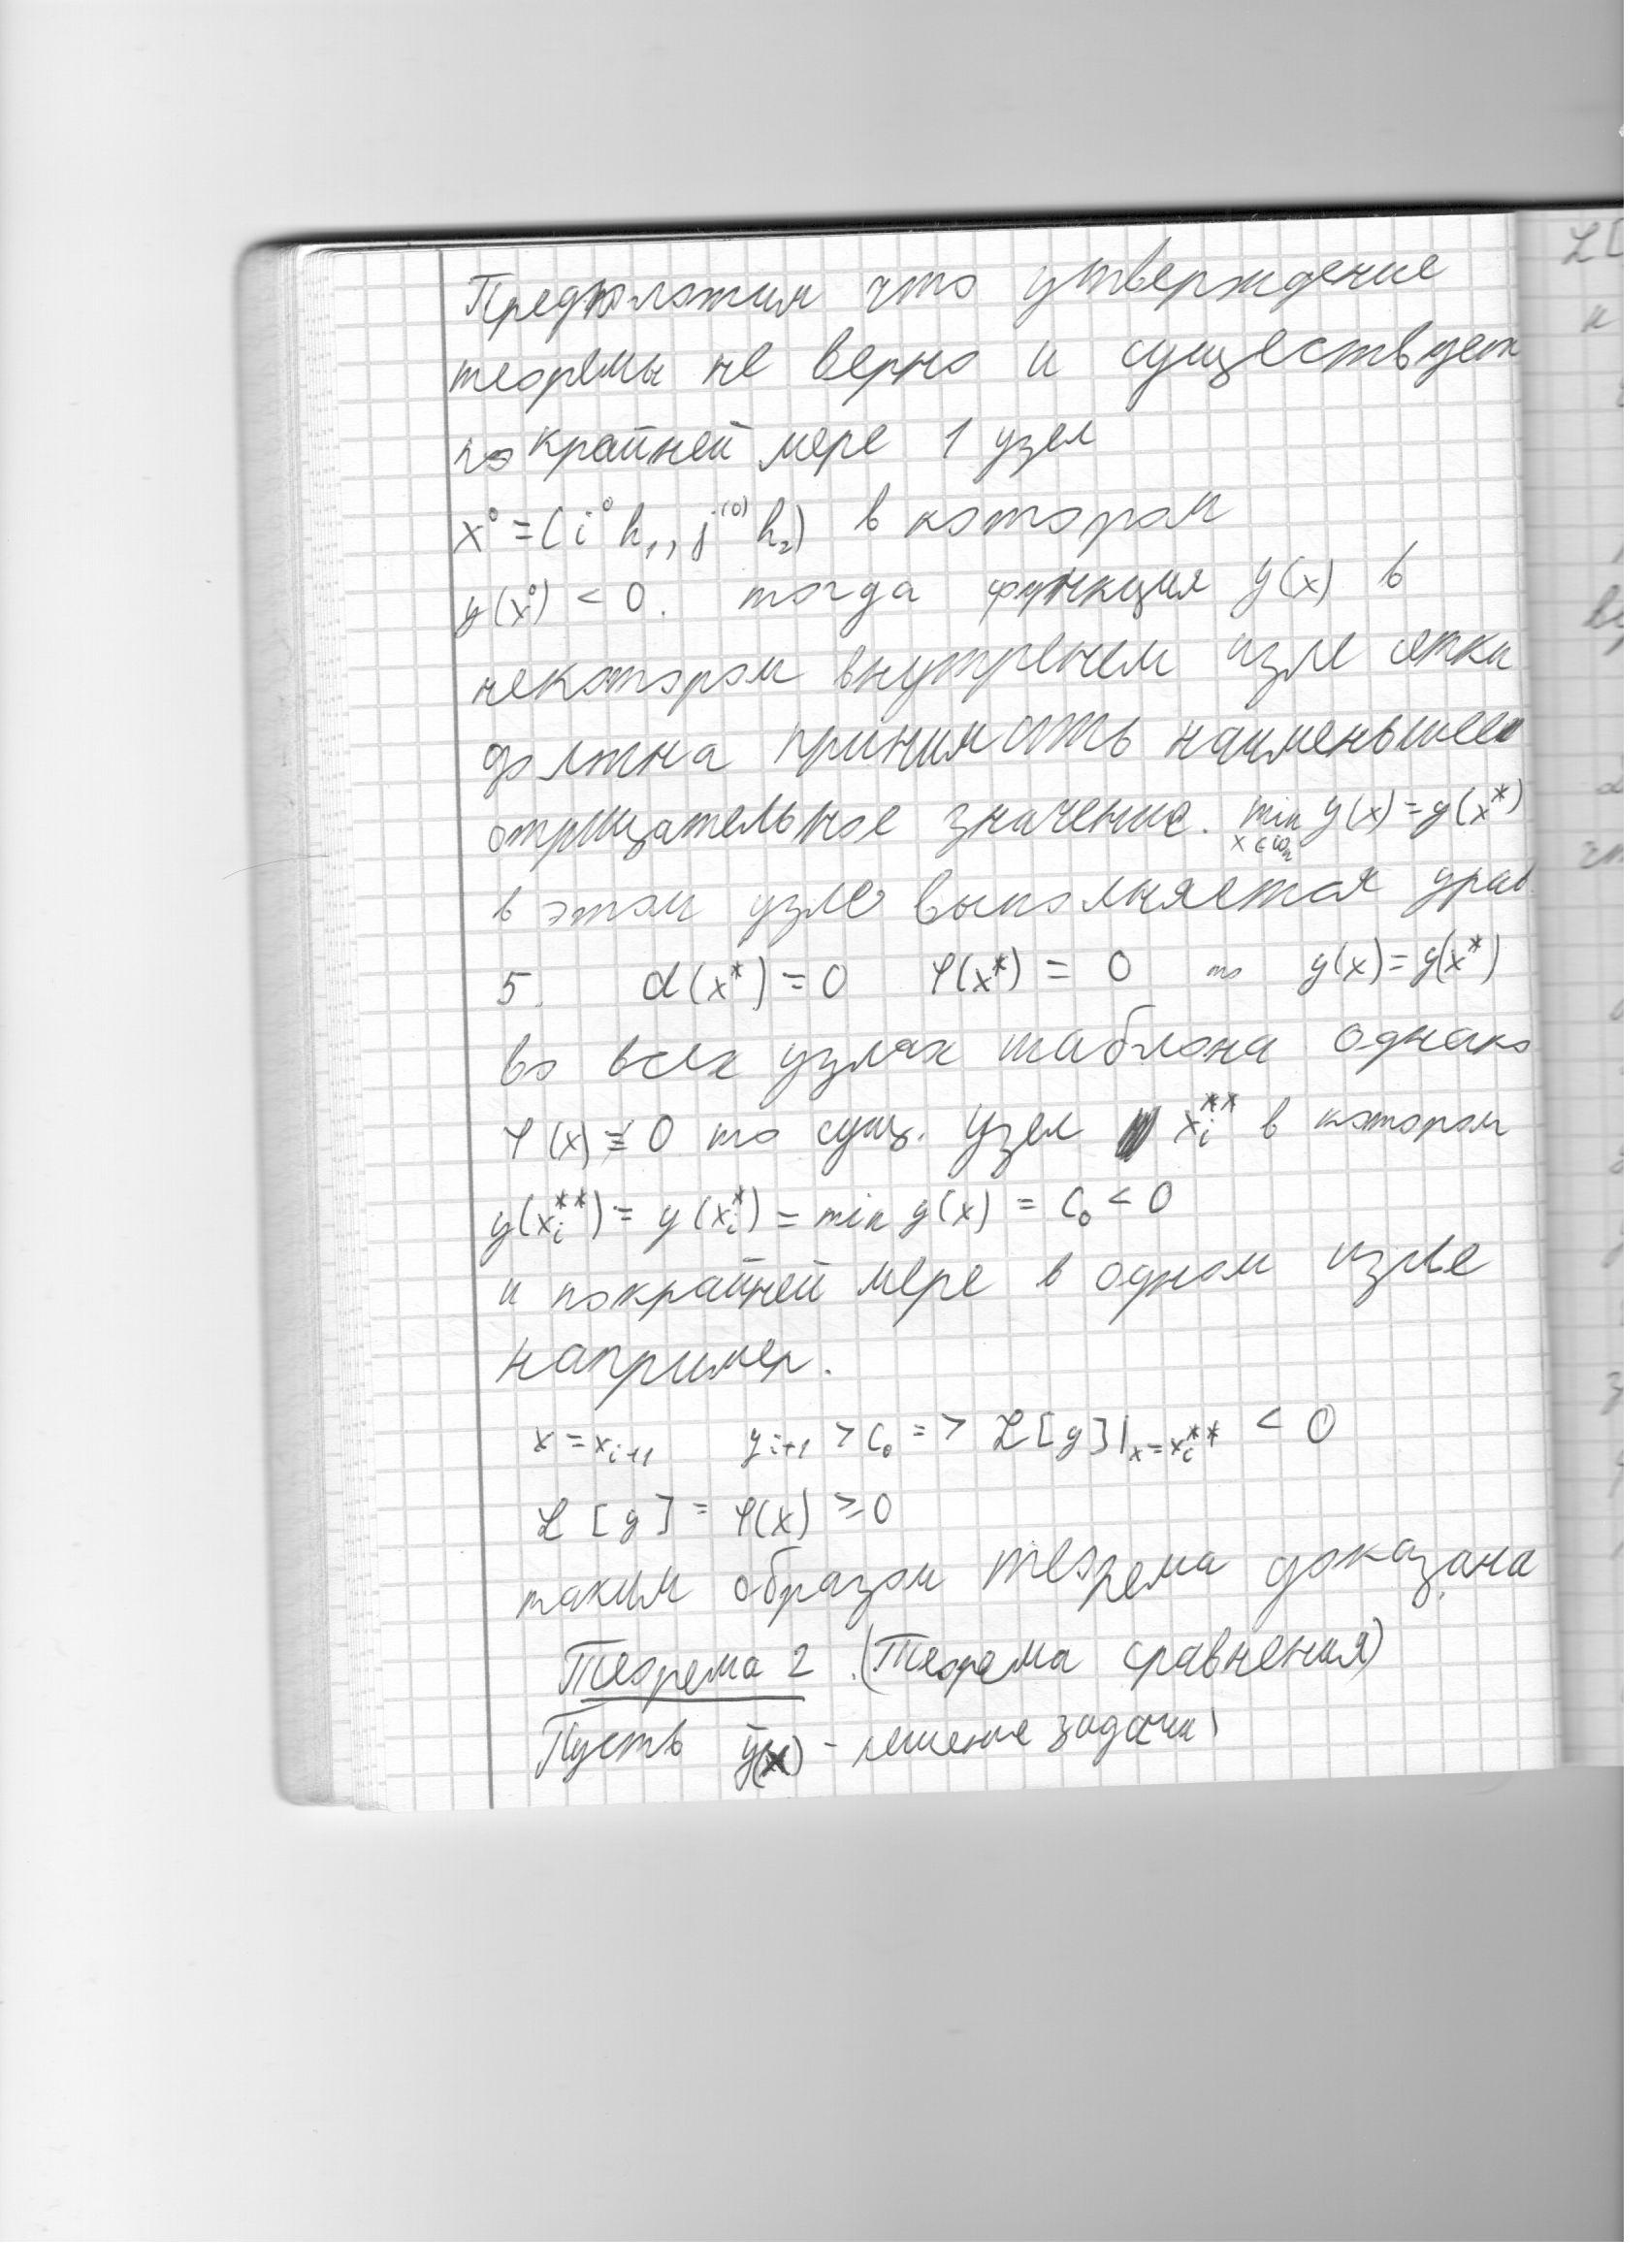 Предположим что утверждение
теоремы не верно и существует
по крайней мере 1 узел
x⁰ = (i⁰h₁, j⁽⁰⁾h₂) в котором
y(x⁰) < 0. тогда функция y(x) в
некотором внутренем узле сетки
должна принимать наименьшее
отрицательное значение. min y(x) = y(x*)
x∈ω_h
в этом узле выполняется урав
5. d(x*) = 0 φ(x*) = 0 то y(x) = y(x*)
во всех узлах шаблона однако
φ(x) ≢ 0 то сущ. узел x_i** в котором
y(x_i**) = y(x_i*) = min y(x) = C₀ < 0
и покрайней мере в одном узле
например.
x = x_{i+1} y_{i+1} > C₀ => ℒ[y]|_{x=x_i**} < 0
ℒ[y] = φ(x) ≥ 0
таким образом теорема доказана
Теорема 2. (Теорема сравнения)
Пусть ȳ(x) - решение задачи